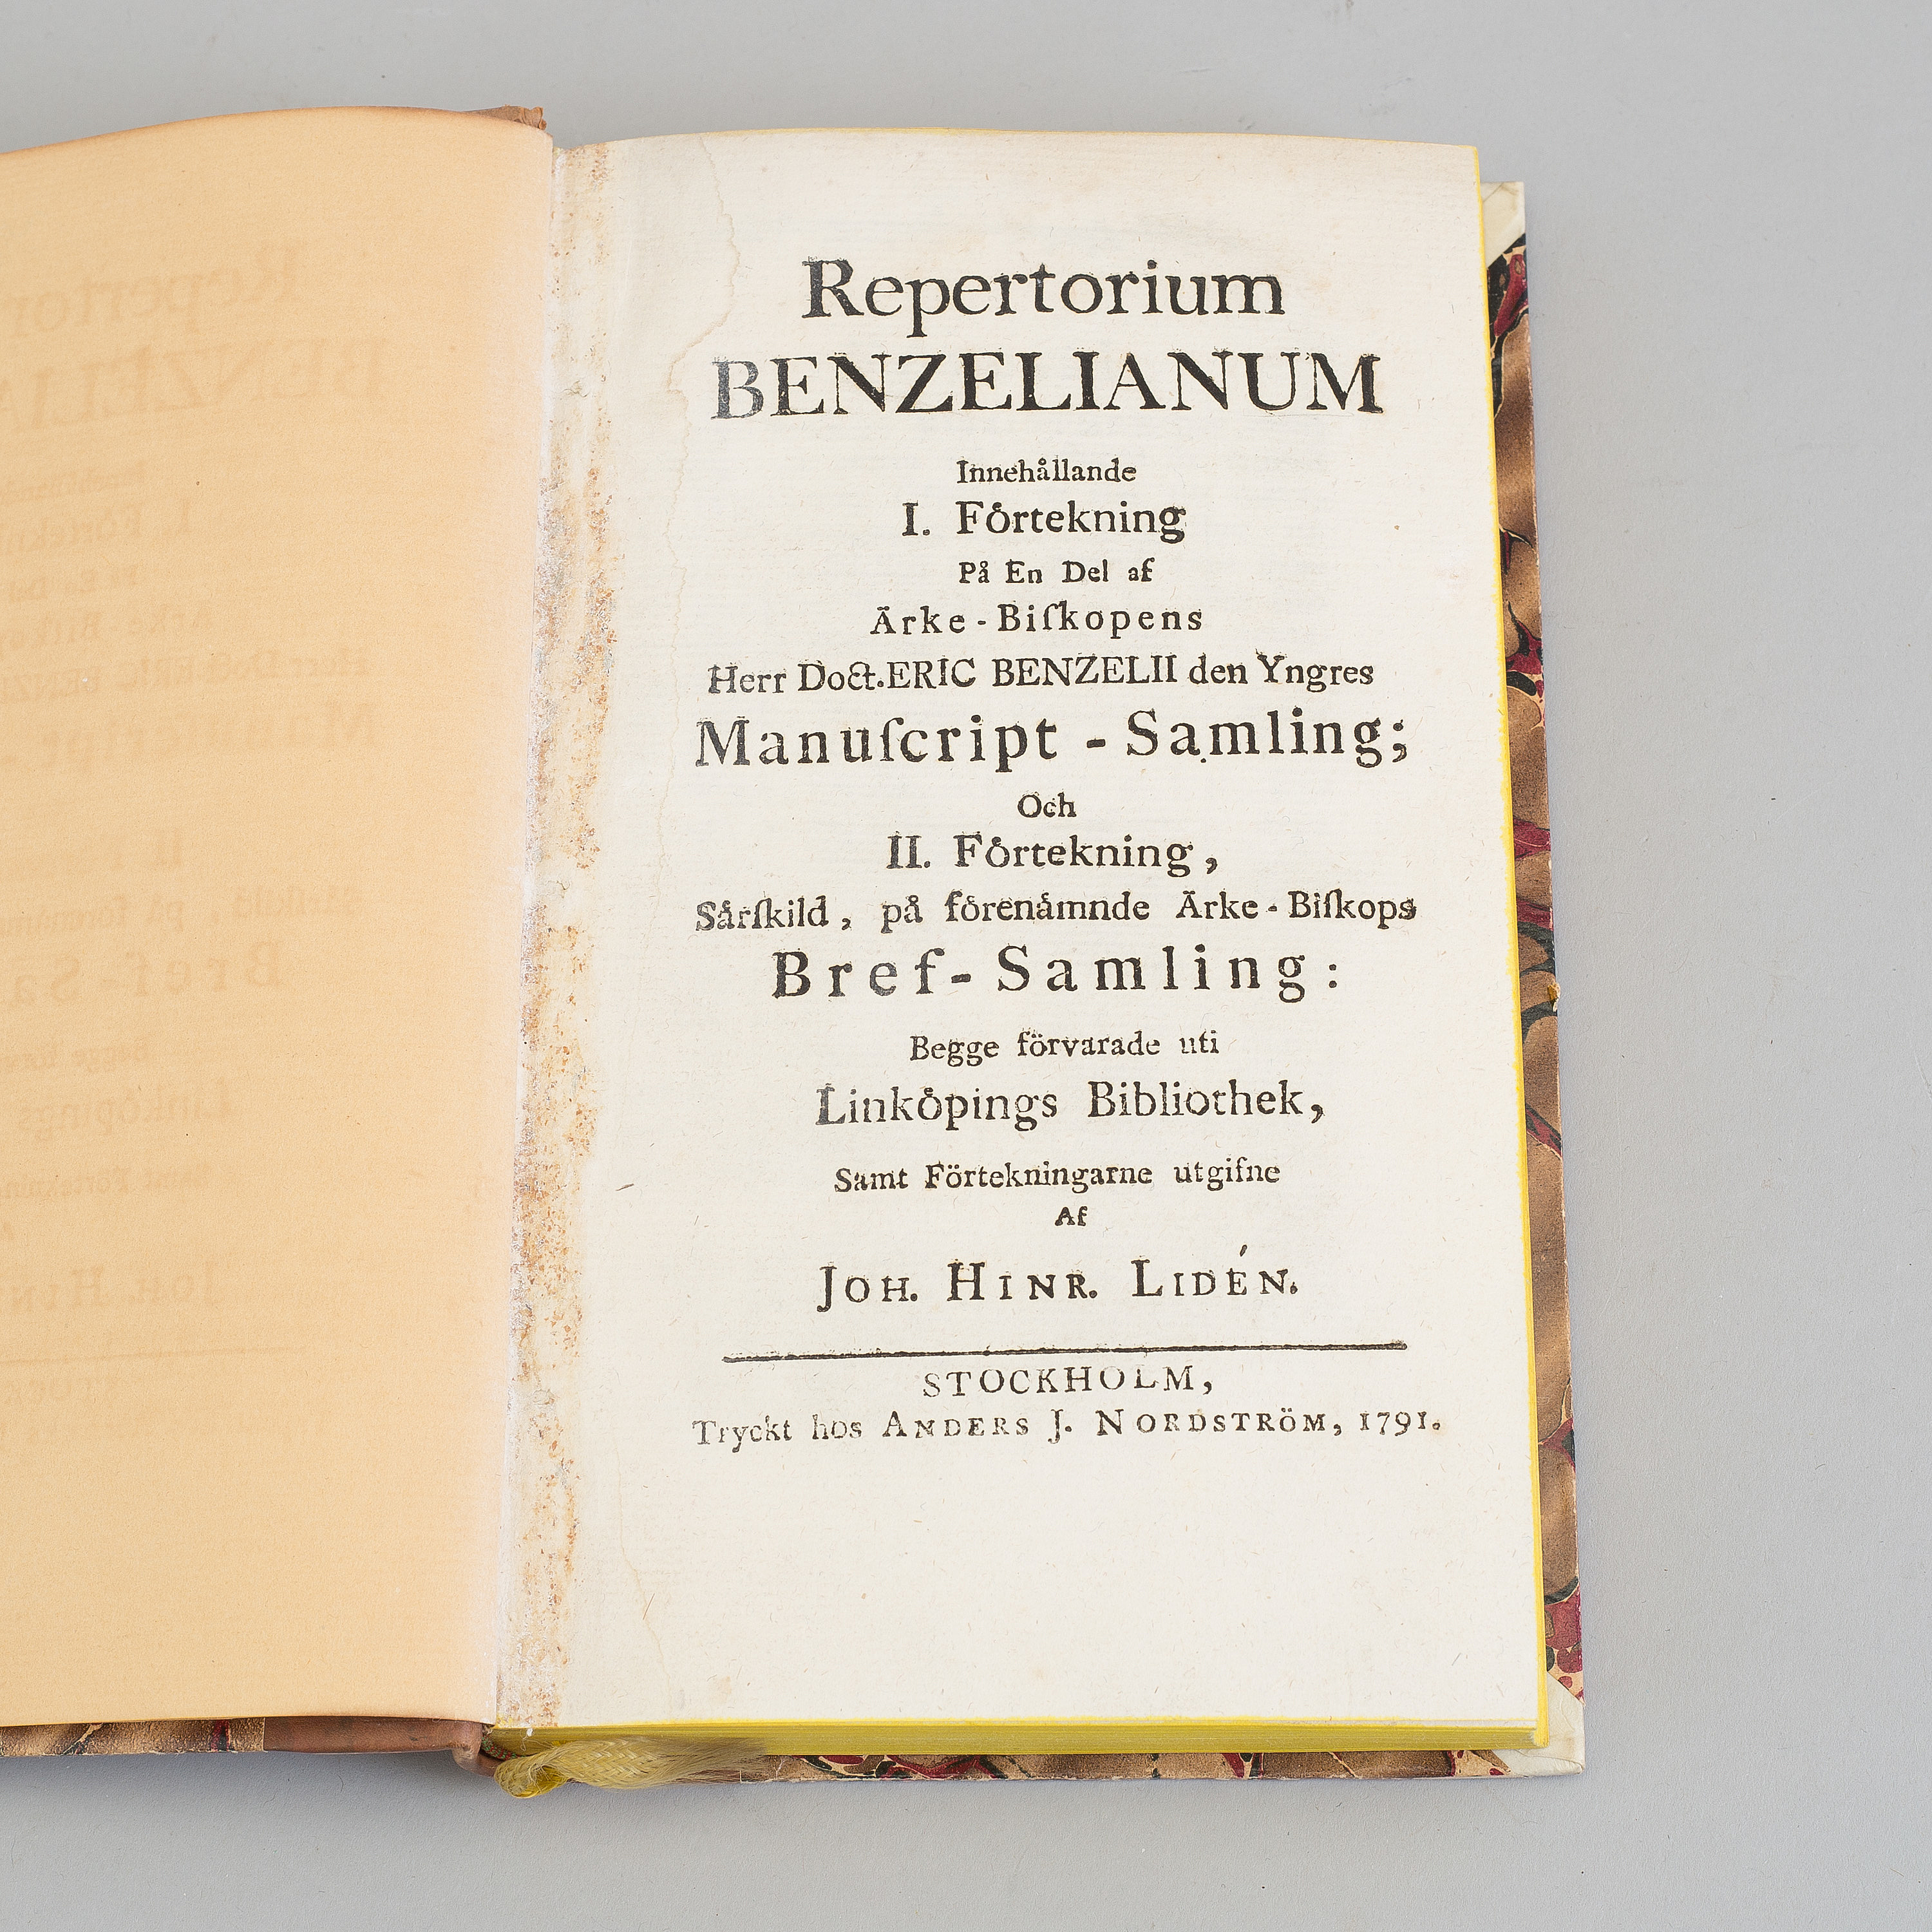 Repertorium
BENZELIANUM
Innehållande
I. Förtekning
På En Del af
Ärke-Biſkopens
Herr Doct. ERIC BENZELII den Yngres
Manuſcript-Samling;
Och
II. Förtekning,
Sårſkild, på förenåmnde Ärke-Biſkops
Bref-Samling:
Begge förvarade uti
Linköpings Bibliothek,
Samt Förtekningarne utgifne
Af
JOH. HINR. LIDÉN.
STOCKHOLM,
Tryckt hos ANDERS J. NORDSTRÖM, 1791.